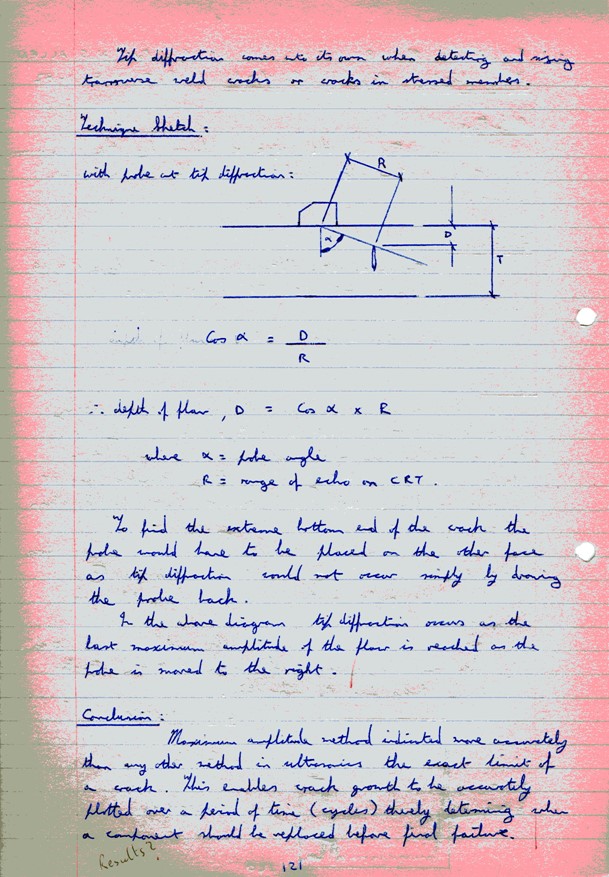 Tip diffraction comes into its own when detecting and sizing
transverse weld cracks or cracks in stressed members.
Technique Sketch:
with probe at tip diffraction:
R
D
α
T
Cos α = D
R
∴ depth of flaw, D = Cos α x R
where α = probe angle
R = range of echo on CRT.
To find the extreme bottom end of the crack the
probe would have to be placed on the other face
as tip diffraction could not occur simply by drawing
the probe back.
In the above diagram tip diffraction occurs as the
last maximum amplitude of the flaw is reached as the
probe is moved to the right.
Conclusion:
Maximum amplitude method indicated more accurately
than any other method in ultrasonics the exact limit of
a crack. This enables crack growth to be accurately
plotted over a period of time (cycles) thereby when
a component should be replaced before final failure.
Results?
121